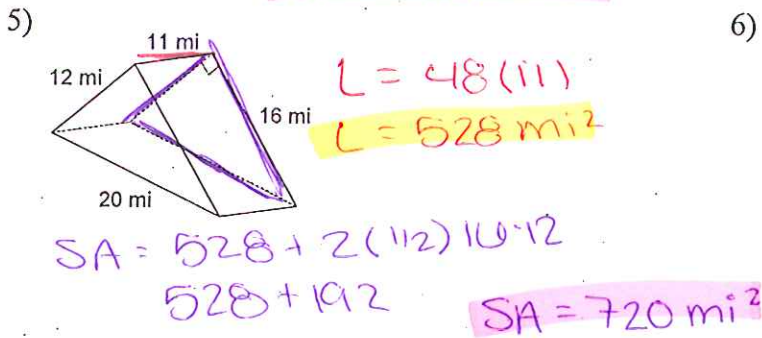 5)
6)
11 mi
12 mi
16 mi
20 mi
L = 48(11)
L = 528 mi²
SA = 528 + 2(1/2)16·12
528 + 192
SA = 720 mi²